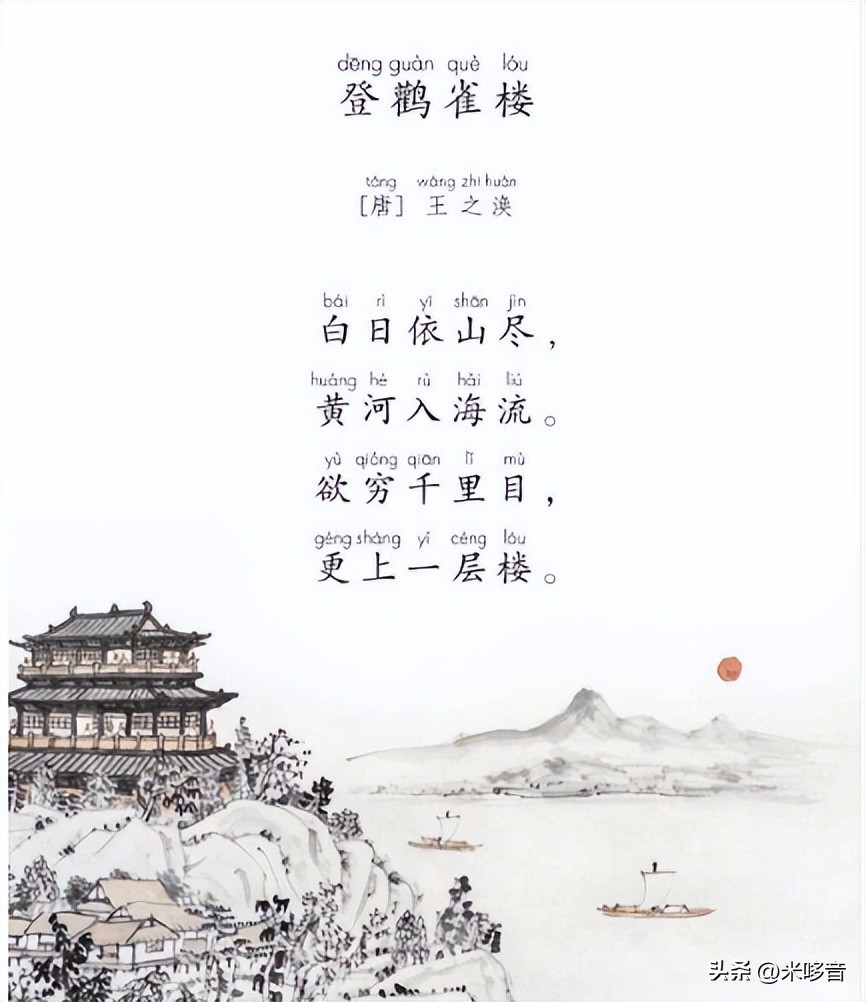 dēng guàn què lóu
登鹳雀楼
táng wáng zhī huàn
[唐] 王之涣
bái rì yī shān jìn
白日依山尽，
huáng hé rù hǎi liú
黄河入海流。
yù qióng qiān lǐ mù
欲穷千里目，
gèng shàng yì céng lóu
更上一层楼。
头条 @米哆音